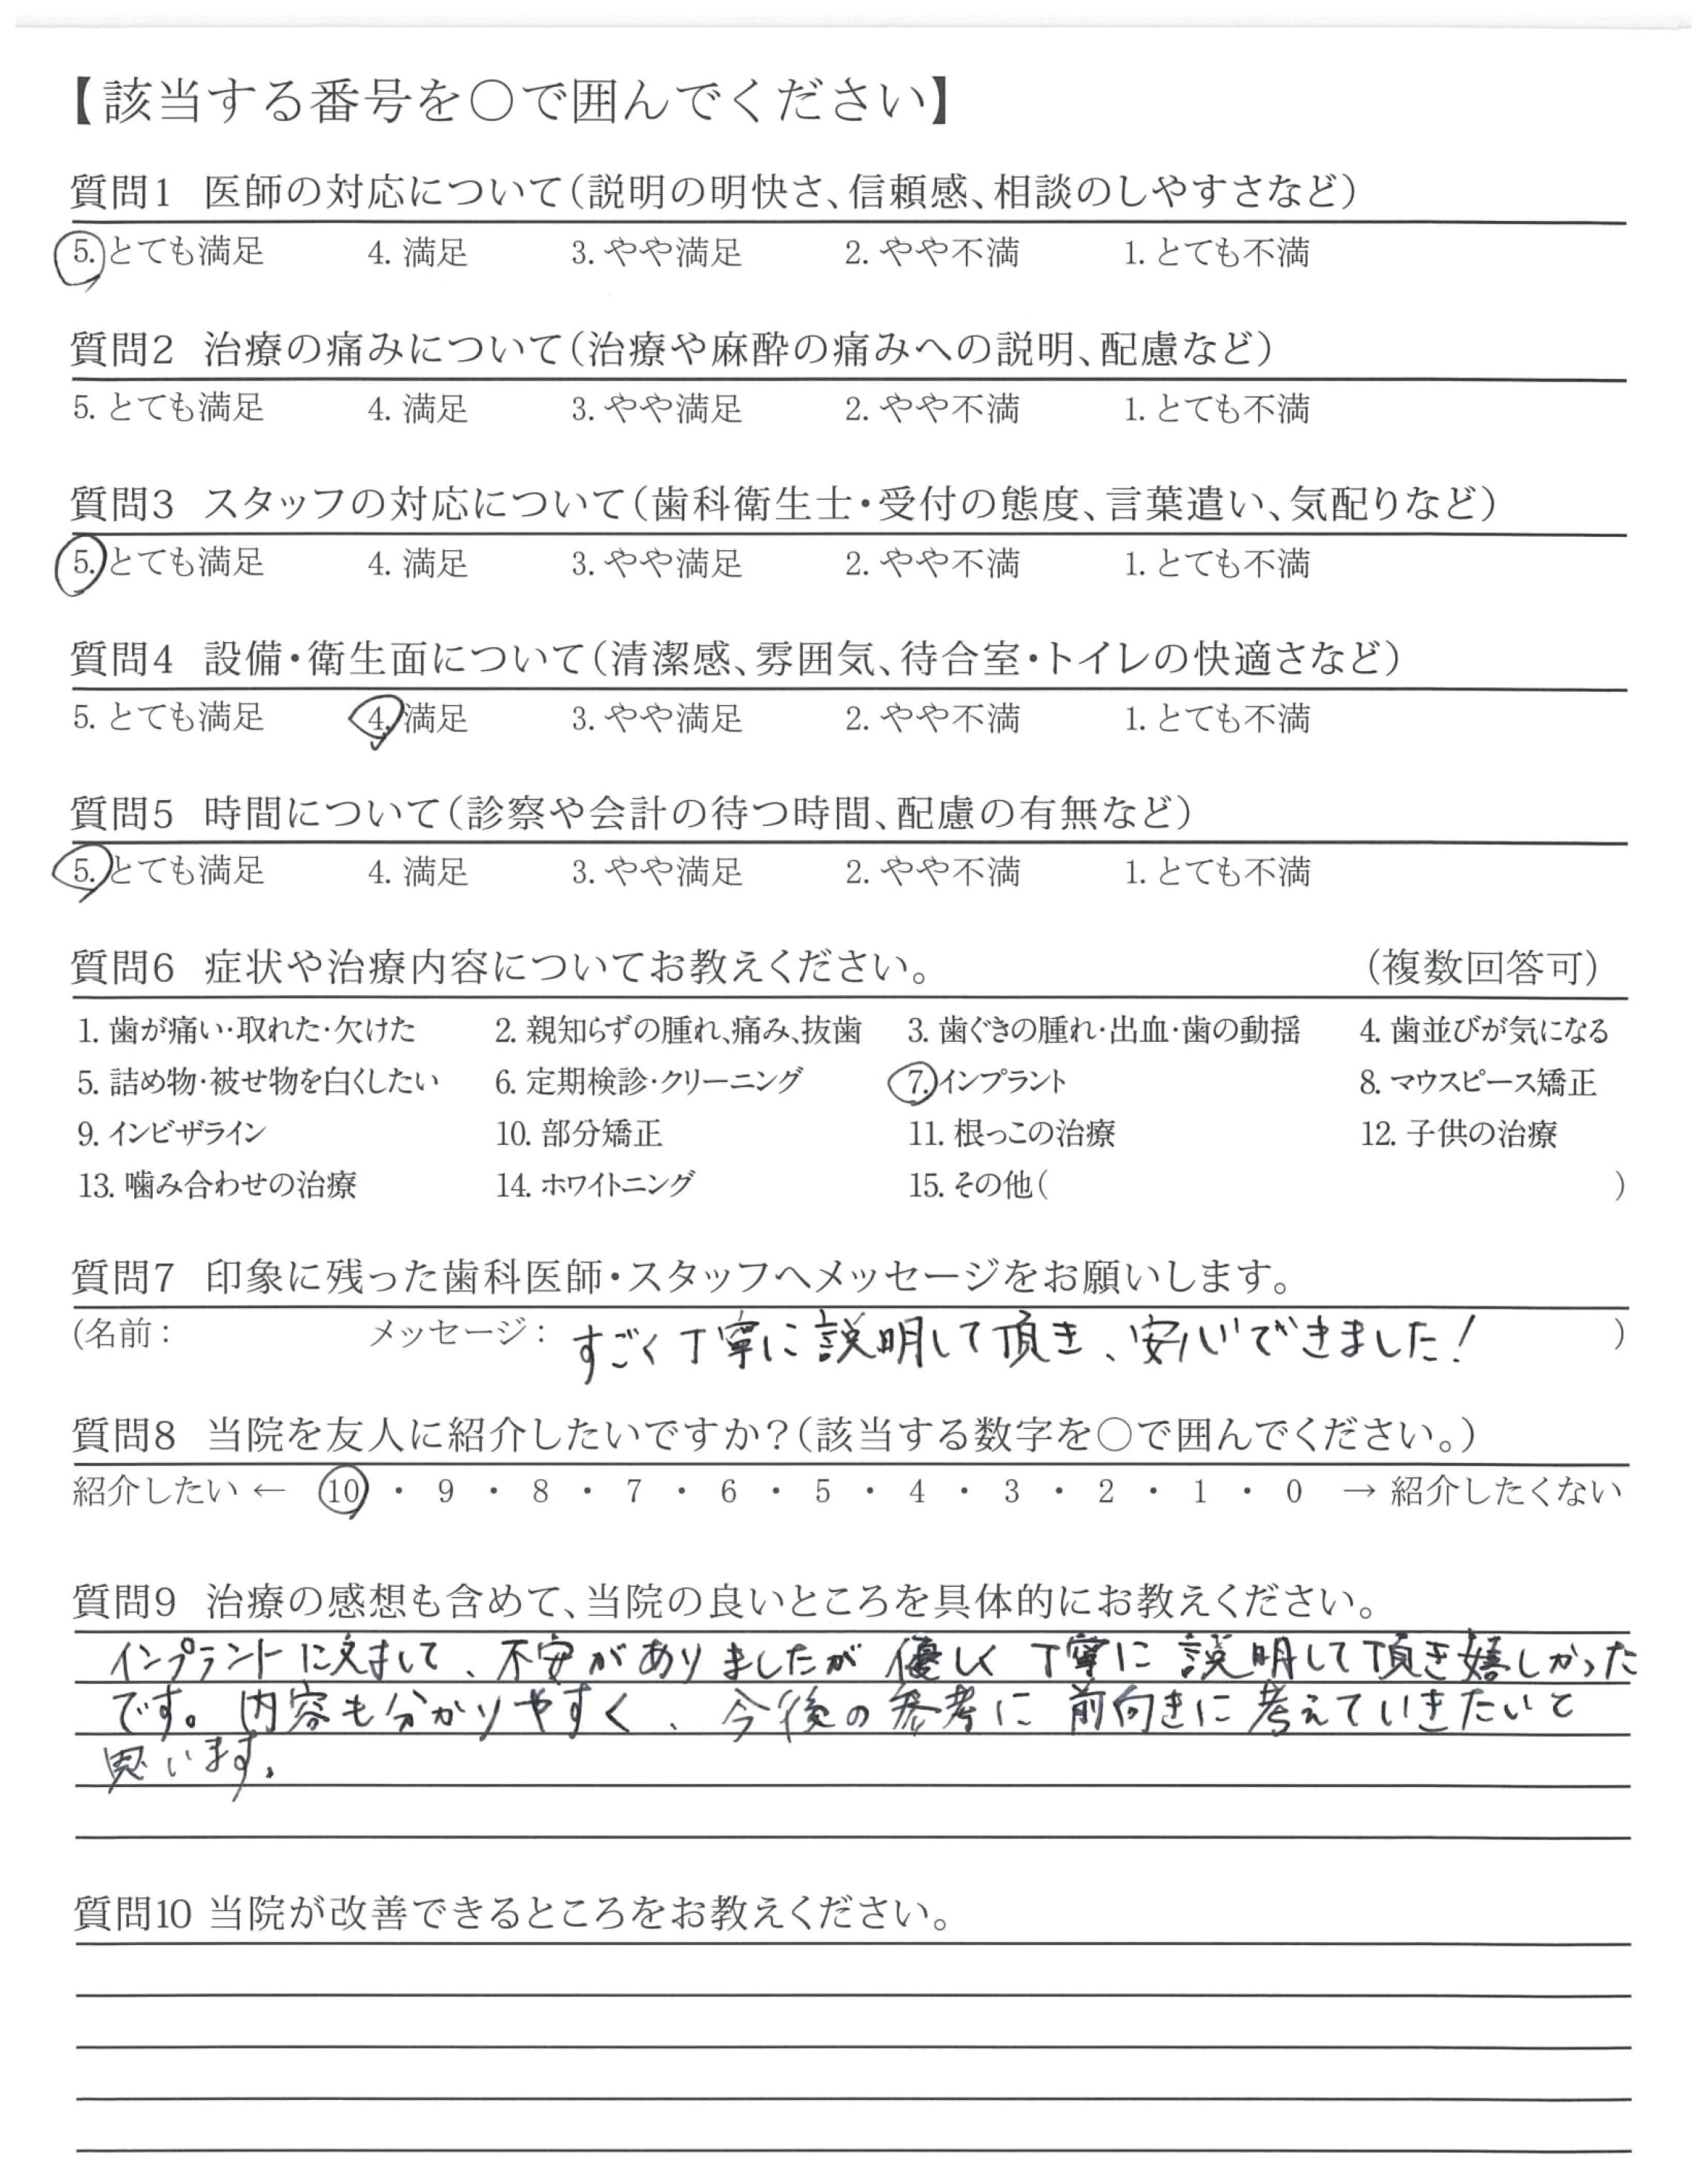 【該当する番号を〇で囲んでください】
質問1 医師の対応について(説明の明快さ、信頼感、相談のしやすさなど)
5. とても満足 4. 満足 3. やや満足 2. やや不満 1. とても不満
質問2 治療の痛みについて(治療や麻酔の痛みへの説明、配慮など)
5. とても満足 4. 満足 3. やや満足 2. やや不満 1. とても不満
質問3 スタッフの対応について(歯科衛生士・受付の態度、言葉遣い、気配りなど)
5. とても満足 4. 満足 3. やや満足 2. やや不満 1. とても不満
質問4 設備・衛生面について(清潔感、雰囲気、待合室・トイレの快適さなど)
5. とても満足 4. 満足 3. やや満足 2. やや不満 1. とても不満
質問5 時間について(診察や会計の待つ時間、配慮の有無など)
5. とても満足 4. 満足 3. やや満足 2. やや不満 1. とても不満
質問6 症状や治療内容についてお教えください。 (複数回答可)
1. 歯が痛い・取れた・欠けた 2. 親知らずの腫れ、痛み、抜歯 3. 歯ぐきの腫れ・出血・歯の動揺 4. 歯並びが気になる
5. 詰め物・被せ物を白くしたい 6. 定期検診・クリーニング 7. インプラント 8. マウスピース矯正
9. インビザライン 10. 部分矯正 11. 根っこの治療 12. 子供の治療
13. 噛み合わせの治療 14. ホワイトニング 15. その他( )
質問7 印象に残った歯科医師・スタッフへメッセージをお願いします。
(名前: メッセージ: すごく丁寧に説明して頂き、安心できました! )
質問8 当院を友人に紹介したいですか?(該当する数字を〇で囲んでください。)
紹介したい ← 10 ・ 9 ・ 8 ・ 7 ・ 6 ・ 5 ・ 4 ・ 3 ・ 2 ・ 1 ・ 0 → 紹介したくない
質問9 治療の感想も含めて、当院の良いところを具体的にお教えください。
インプラントに対して、不安がありましたが優しく丁寧に説明して頂き嬉しかった
です。内容も分かりやすく、今後の参考に前向きに考えていきたいと
思います。
質問10 当院が改善できるところをお教えください。